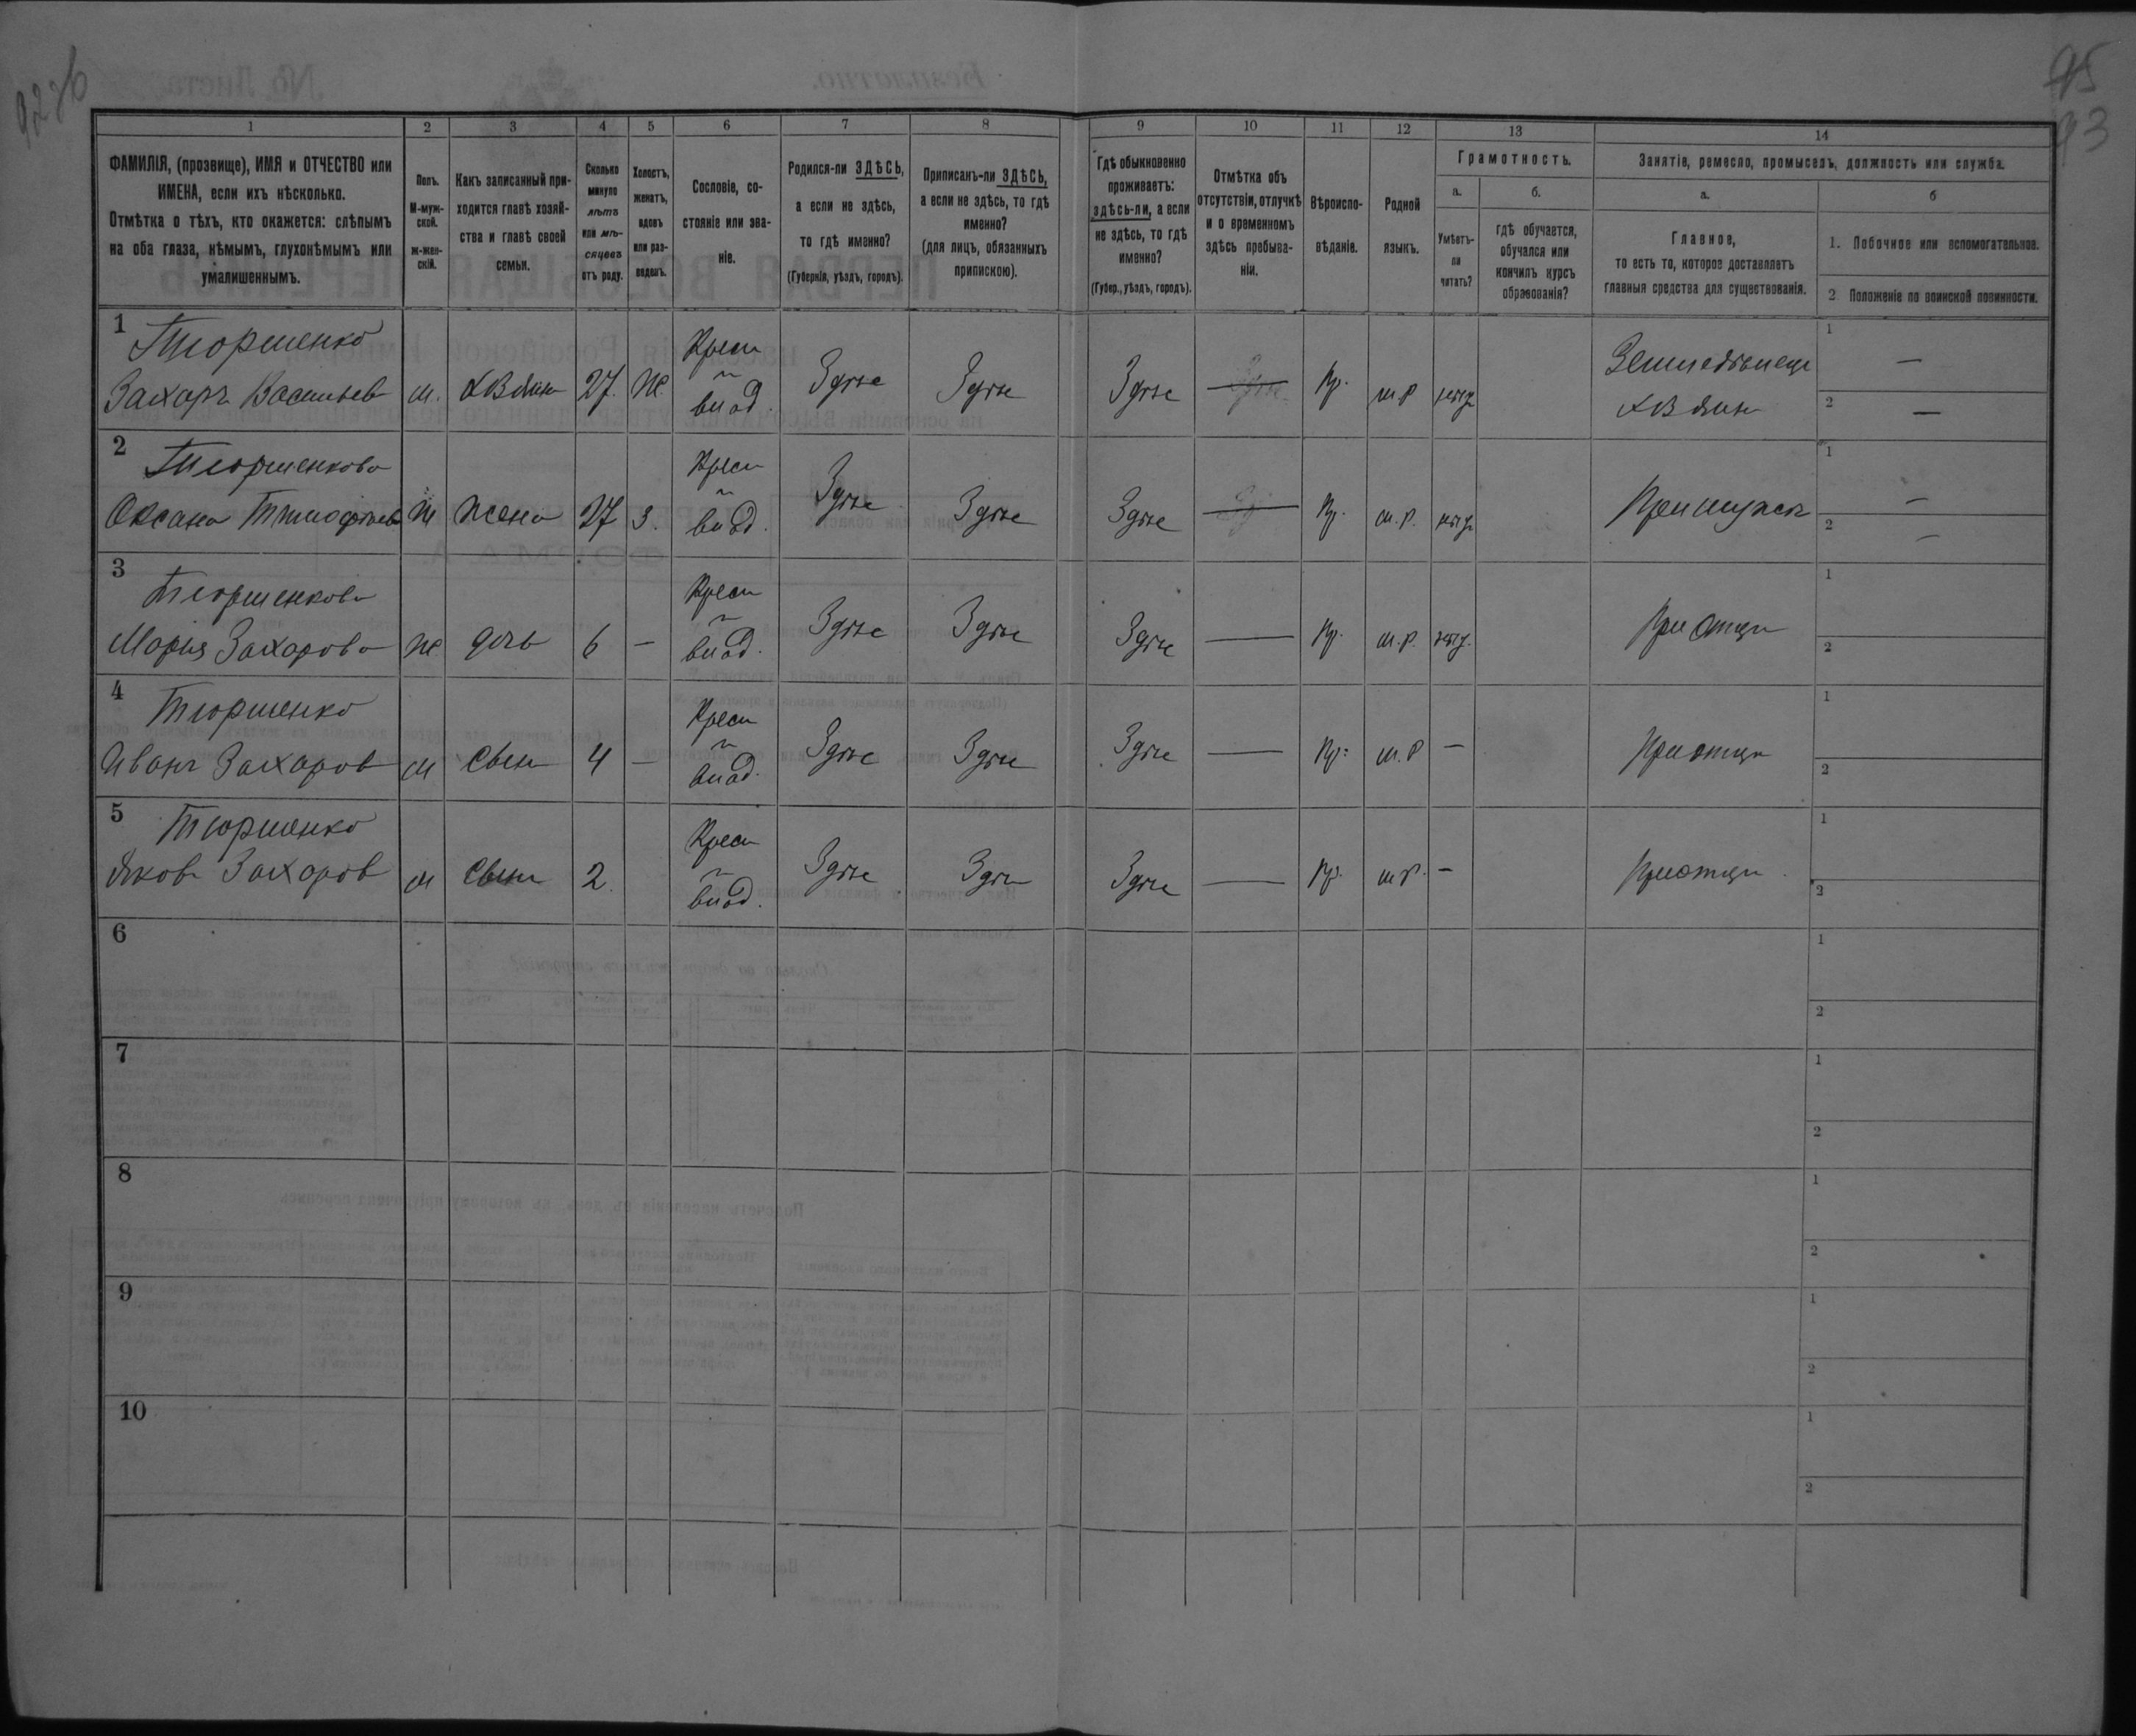 95
93
1
2
3
4
5
6
7
8
9
10
11
12
13
14
ФАМИЛІЯ, (прозвище), ИМЯ и ОТЧЕСТВО или
ИМЕНА, если ихъ нѣсколько.
Отмѣтка о тѣхъ, кто окажется: слѣпымъ
на оба глаза, нѣмымъ, глухонѣмымъ или
умалишеннымъ.
Полъ.
М-муж-
ской.
ж-жен-
скій.
Какъ записанный при-
ходится главѣ хозяй-
ства и главѣ своей
семьи.
Сколько
минуло
лѣтъ
или мѣ-
сяцевъ
отъ роду.
Холостъ,
женатъ,
вдовъ
или раз-
веденъ.
Сословіе, со-
стояніе или зва-
ніе.
Родился-ли ЗДѢСЬ,
а если не здѣсь,
то гдѣ именно?
(Губернія, уѣздъ, городъ).
Приписанъ-ли ЗДѢСЬ,
а если не здѣсь, то гдѣ
именно?
(для лицъ, обязанныхъ
припискою).
Гдѣ обыкновенно
проживаетъ:
здѣсь-ли, а если
не здѣсь, то гдѣ
именно?
(Губер., уѣздъ, городъ).
Отмѣтка объ
отсутствіи, отлучкѣ
и о временномъ
здѣсь пребыва-
ніи.
Вѣроиспо-
вѣданіе.
Родной
языкъ.
Грамотность.
а.
б.
Умѣетъ-
ли
читать?
гдѣ обучается,
обучался или
кончилъ курсъ
образованія?
Занятіе, ремесло, промыселъ, должность или служба.
а.
б
Главное,
то есть то, которое доставляетъ
главныя средства для существованія.
1. Побочное или вспомогательное.
2 Положеніе по воинской повинности.
1
Тюршенко
Захаръ Васильев м. хозяин 27. ж. Крест из влад. Здѣсь Здѣсь Здѣсь — Пр. м.р нѣтъ Земледѣлец хозяин 1 — 2 —
2
Тюршенкова
Оксана Тимофѣева ж жена 27 з. Крест из влад. Здѣсь Здѣсь Здѣсь — Пр. м.р. нѣтъ При мужѣ 1 — 2 —
3
Тюршенкова
Марія Захарова ж дочь 6 — Крест из влад. Здѣсь Здѣсь Здѣсь — Пр. м.р. нѣтъ. При отцѣ 1 2
4
Тюршенко
Иванъ Захаров м сынъ 4 — Крест из влад. Здѣсь Здѣсь Здѣсь — Пр. м.р — При отцѣ 1 2
5
Тюршенко
Яковъ Захаров м сынъ 2. Крест из влад. Здѣсь Здѣсь Здѣсь — Пр. м.р. — При отцѣ 1 2
6 1 2
7 1 2
8 1 2
9 1 2
10 1 2